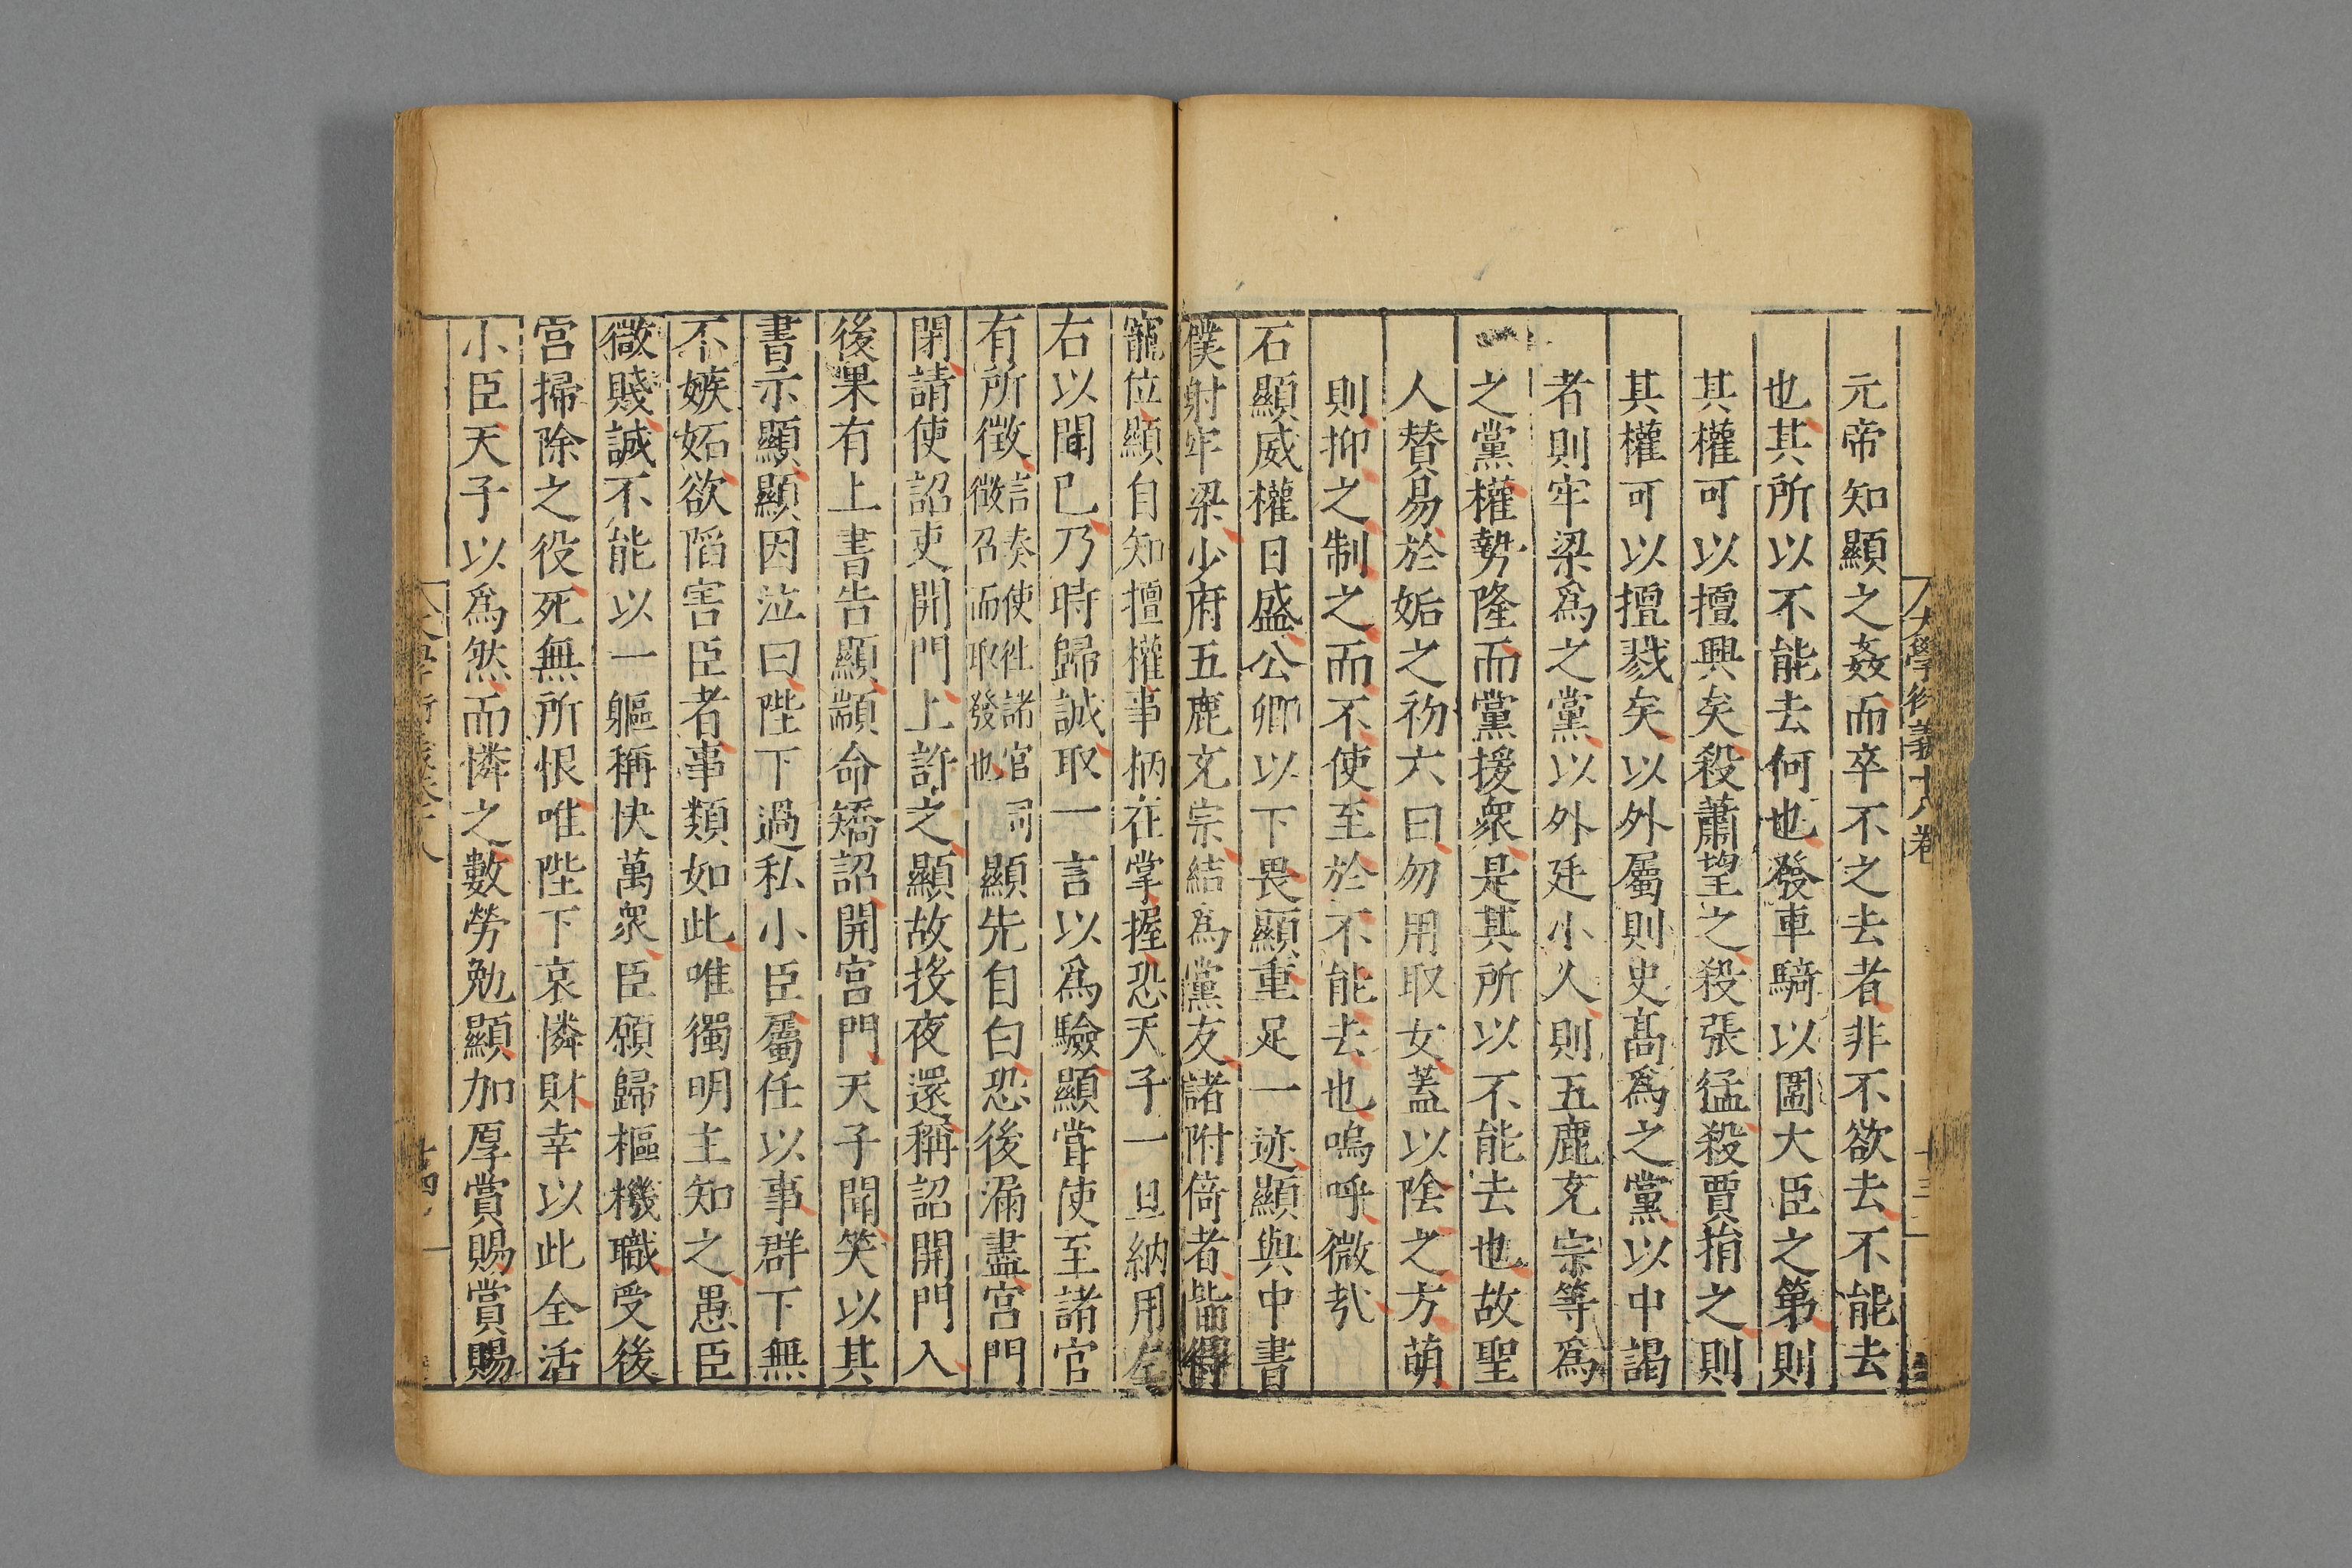 大學衍義十八卷
元帝知顯之姦而卒不之去者非不欲去不能去
也其所以不能去何也發車騎以圖大臣之第則
其權可以擅興矣殺蕭望之殺張猛殺賈捐之則
其權可以擅戮矣以外屬則史髙爲之黨以中謁
者則牢梁爲之黨以外廷小人則五鹿充宗等爲
之黨權勢隆而黨援衆是其所以不能去也故聖
人賛易於姤之初六曰勿用取女蓋以陰之方萌
則抑之制之而不使至於不能去也嗚呼微㢤
石顯威權日盛公卿以下畏顯重足一迹顯與中書
僕射牢梁少府五鹿充宗結爲黨友諸附倚者皆得
寵位顯自知擅權事柄在掌握恐天子一旦納用左
右以間已乃時歸誠取一言以爲驗顯甞使至諸官
有所徵言奏使徃諸官徵召而取發也顯先自白恐後漏盡宫門
閉請使詔吏開門上許之顯故投夜還稱詔開門入
後果有上書告顯顓命矯詔開宫門天子聞笑以其
書示顯顯因泣曰陛下過私小臣屬任以事群下無
不嫉妬欲陷害臣者事類如此唯獨明主知之愚臣
微賤誠不能以一軀稱快萬衆臣願歸樞機職受後
宫掃除之役死無所恨唯陛下哀憐財幸以此全活
小臣天子以爲然而憐之數勞勉顯加厚賞賜賞賜